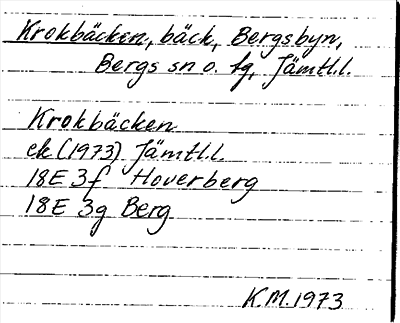 Krokbäcken, bäck, Bergsbyn,
Bergs sn o. tg, Jämtl.l.
Krokbäcken
ek (1973) Jämtl.l.
18E 3f Hoverberg
18E 3g Berg
K.M. 1973